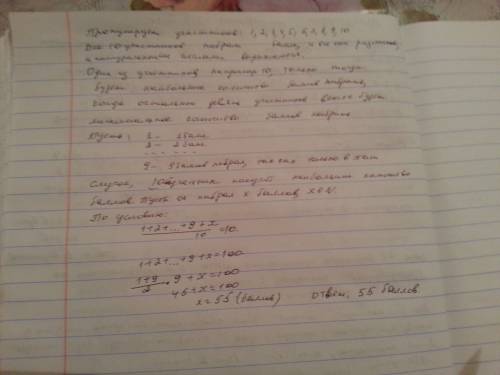 Пронумеруем участников: 1, 2, 3, 4, 5, 6, 7, 8, 9, 10
Все 10 участников набрали баллы, и все они различны,
и натуральными числами выражаются.
Один из участников, например 10, только тогда
будет наибольшее количество баллов набрать,
когда остальные девять участников вместе будут
минимальное количество баллов набрали
Пусть: 1 - 1 балл
2 - 2 балл
- - - - - - -
9 - 9 баллов набрал, так как только в этом
случае, 10 участник наберет наибольшее количество
баллов. Пусть он набрал x баллов, X∈N.
По условию:
1+2+...+9+x / 10 = 10.
1+2+...+9+x=100
1+9 / 2 · 9 + x = 100
45+x=100
x=55 (баллов) Ответ: 55 баллов